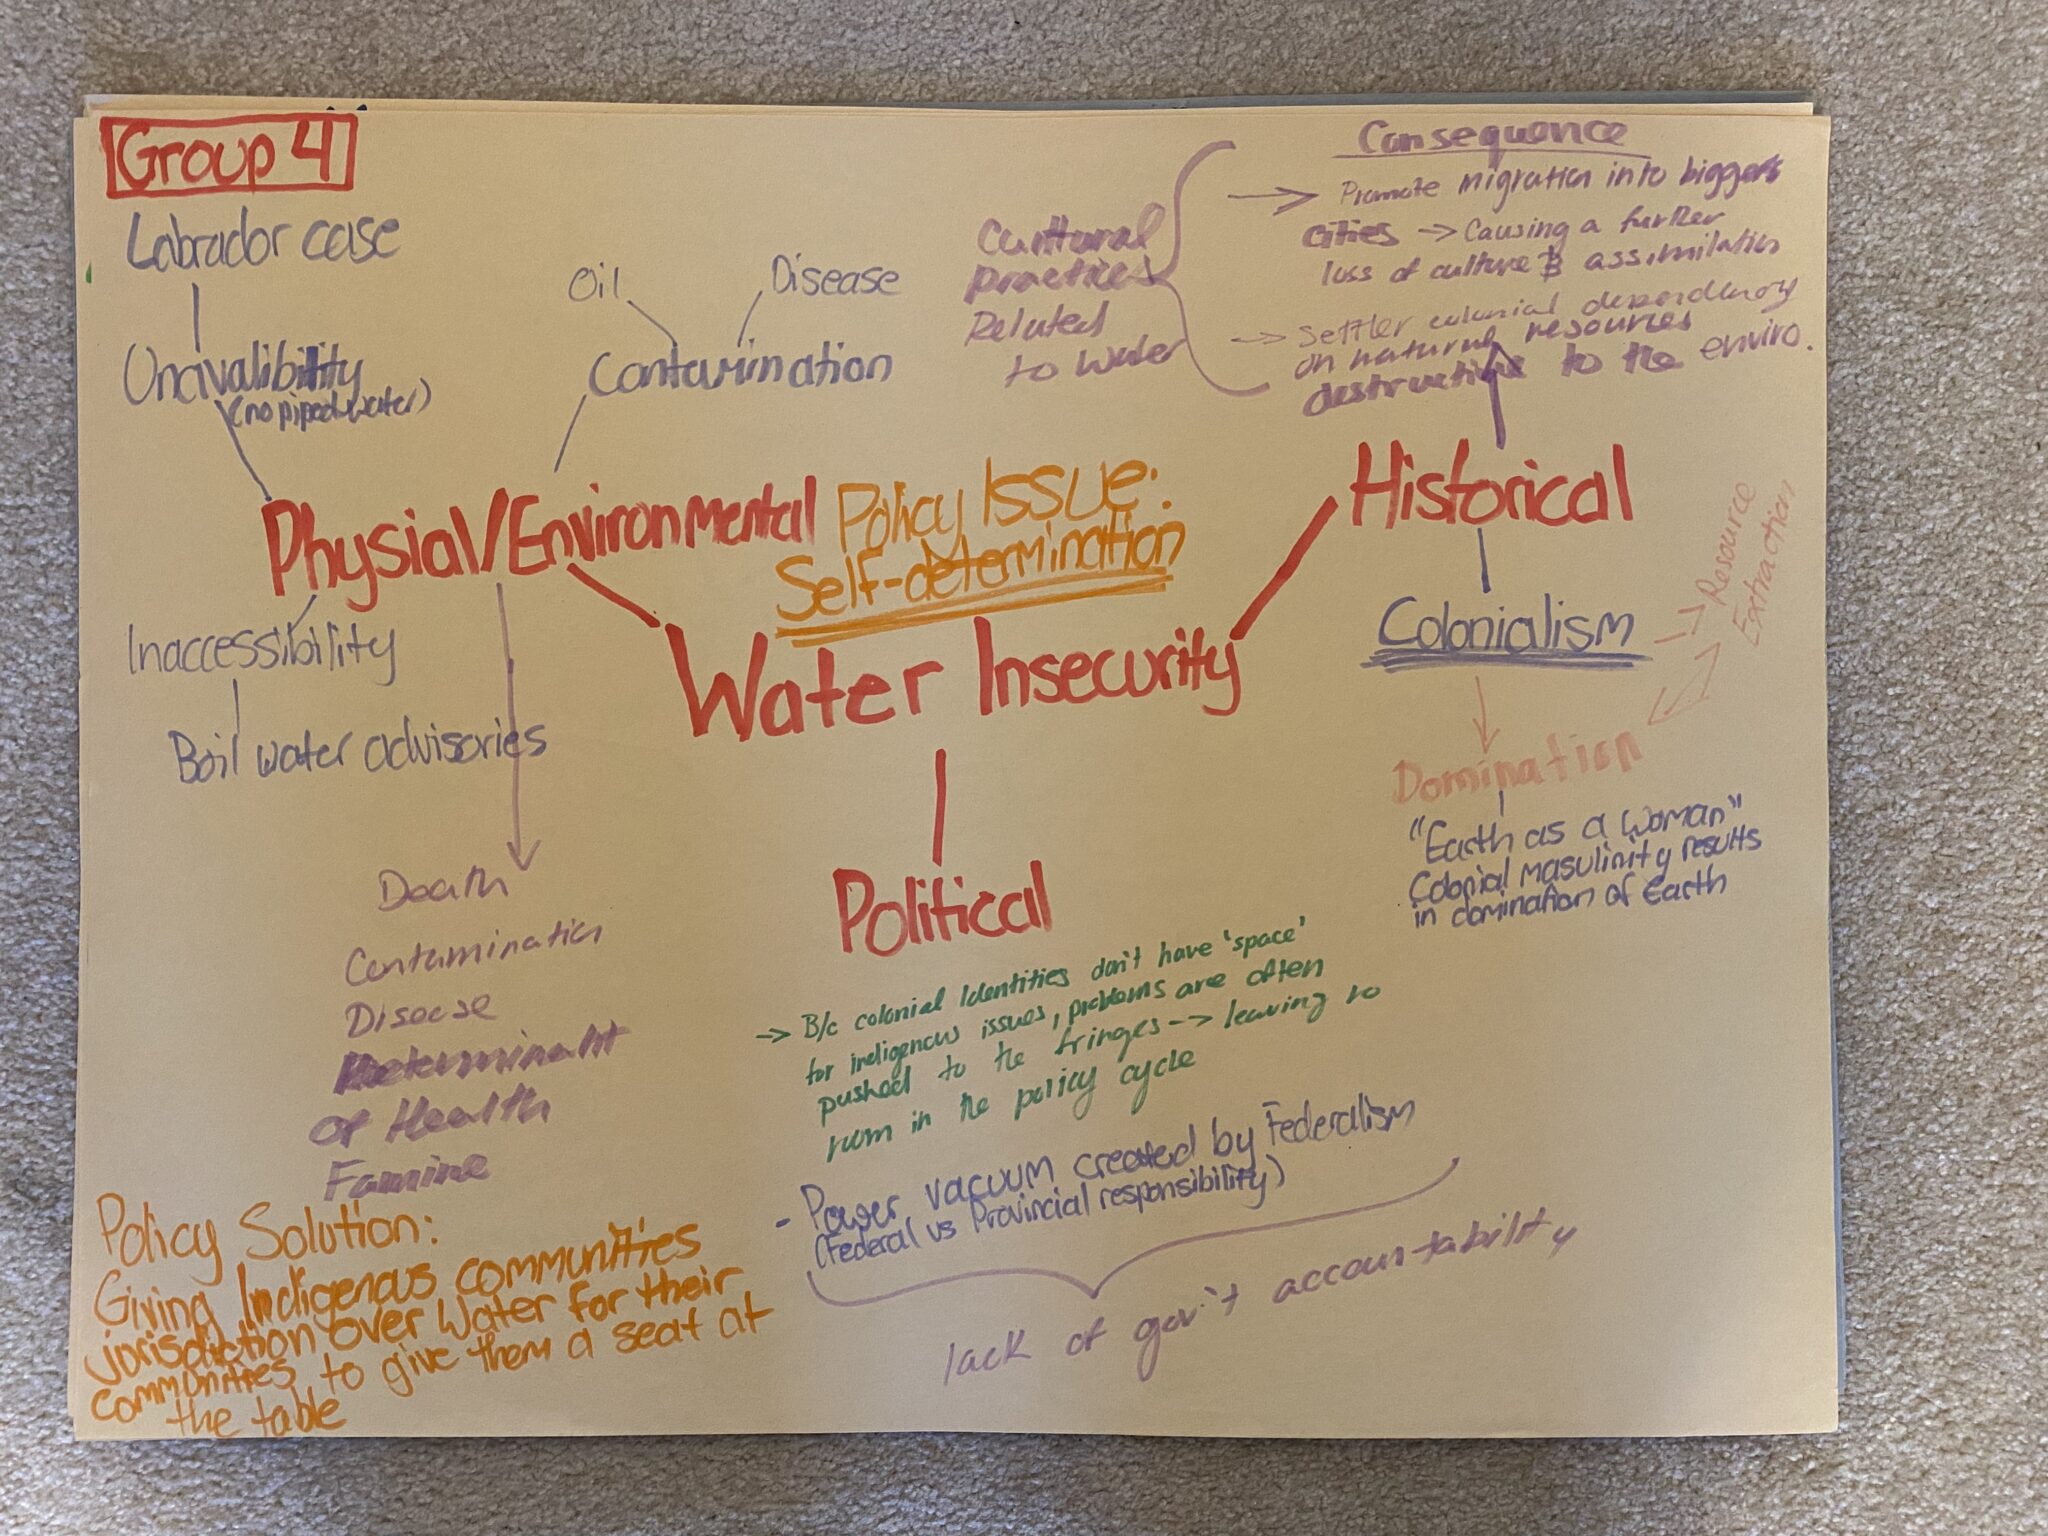 Group 4
Labrador case
Unavalibility
(no piped water)
Oil
Disease
Contamination
Cultural
practices
Related
to water
Consequence
→ Promote migration into bigger
cities → Causing a further
loss of culture & assimilation
→ Settler colonial dependency
on natural resources
destruction to the enviro.
Physial/Environmental
Policy Issue:
Self-determination
Historical
Inaccessibility
Boil water advisories
Water Insecurity
Colonialism
→ Resource
Extraction
Domination
"Earth as a woman"
Colonial masulinity results
in domination of Earth
Death
Contamination
Disease
Determinant
of Health
Famine
Political
→ B/c colonial Identities don't have 'space'
for indigenous issues, problems are often
pushed to the fringes --> leaving no
room in the policy cycle
- Power vacuum created by Federalism
(Federal vs Provincial responsibility)
lack of gov't accountability
Policy Solution:
Giving Indigenous communities
jorisdiction over Water for their
communities to give them a seat at
the table